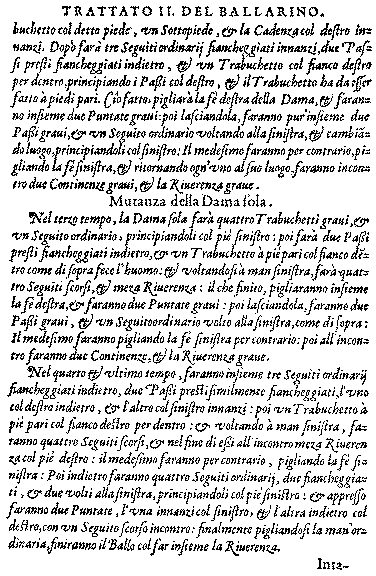 TRATTATO II. DEL BALLARINO.
buchetto col detto piede, vn Sottopiede, & la Cadenza col destro in-
nanzi. Dopò farà tre Seguiti ordinarij fiancheggiati innanzi, due Paſ-
ſi presti fiancheggiati indietro, & vn Trabuchetto col fianco destro
per dentro, principiandi i Paßi col destro, & il Trabuchetto ha da eſſer
fatto à piedi pari. Ciò fatto, pigliarà la fè destra della Dama, & faran-
no inſieme due Puntate graui: poi laſciandola, faranno pur'inſieme due
Paßi graui, & vn Seguito ordinario voltando alla ſinistra, & cambiā-
do luogo, principiandoli col ſinistro: Il medeſimo faranno per contrario, pi-
gliando la fè ſinistra, & ritornando ogn'vno al ſuo luogo, faranno incon-
tro due Continenze graui, & la Riuerenza graue.
Mutanza della Dama ſola.
Nel terzo tempo, la Dama ſola farà quattro Trabuchetti graui, & vn
Seguito ordinario, principiandoli col piè ſinistro: poi farà due Paßi
presti fiancheggiati indietro, & vn Trabuchetto à piè pari col fianco de-
stro come di ſopra fece l'huomo: & voltandoſi à man ſinistra, farà quat-
tro Seguiti ſcorſi, & meza Riuerenza: il che finito, pigliaranno inſieme
la fè destra, & faranno due Puntate graui: poi laſciandola, faranno due
Paßi graui, & vn Seguito ordinario volto alla ſinistra, come di ſopra:
Il medeſimo faranno pigliando la fè ſinistra per contrario: poi all'incon-
tro faranno due Continenze, & la Riuerenza graue.
Nel quarto & vltimo tempo, faranno inſieme tre Seguiti ordinarij
fiancheggiati indietro, due Paßi presti ſimilmente fiancheggiati, l'vno
col destro indietro, & l'altro col ſinistro innanzi: poi vn Trabuchetto à
piè pari col fianco destro per dentro: & voltando à man ſinistra, fa-
ranno quattro Seguiti ſcorſi, & nel fine di eßi all'incontro meza Riueren
za col piè destro: il medeſimo faranno per contrario, pigliando la fè ſi-
nistra: Poi indietro faranno quattro Seguiti ordinarij, due fiancheggia-
ti, & due volti alla ſinistra, principiandoli col piè ſinistro: & appreſſo
faranno due Puntate, l'vna innanzi col ſinistro, & l'altra indietro col
destro, con vn Seguito ſcorſo incontro: finalmente pigliandoſi la man'or-
dinaria, finiranno il Ballo col far inſieme la Riuerenza.
Inta-